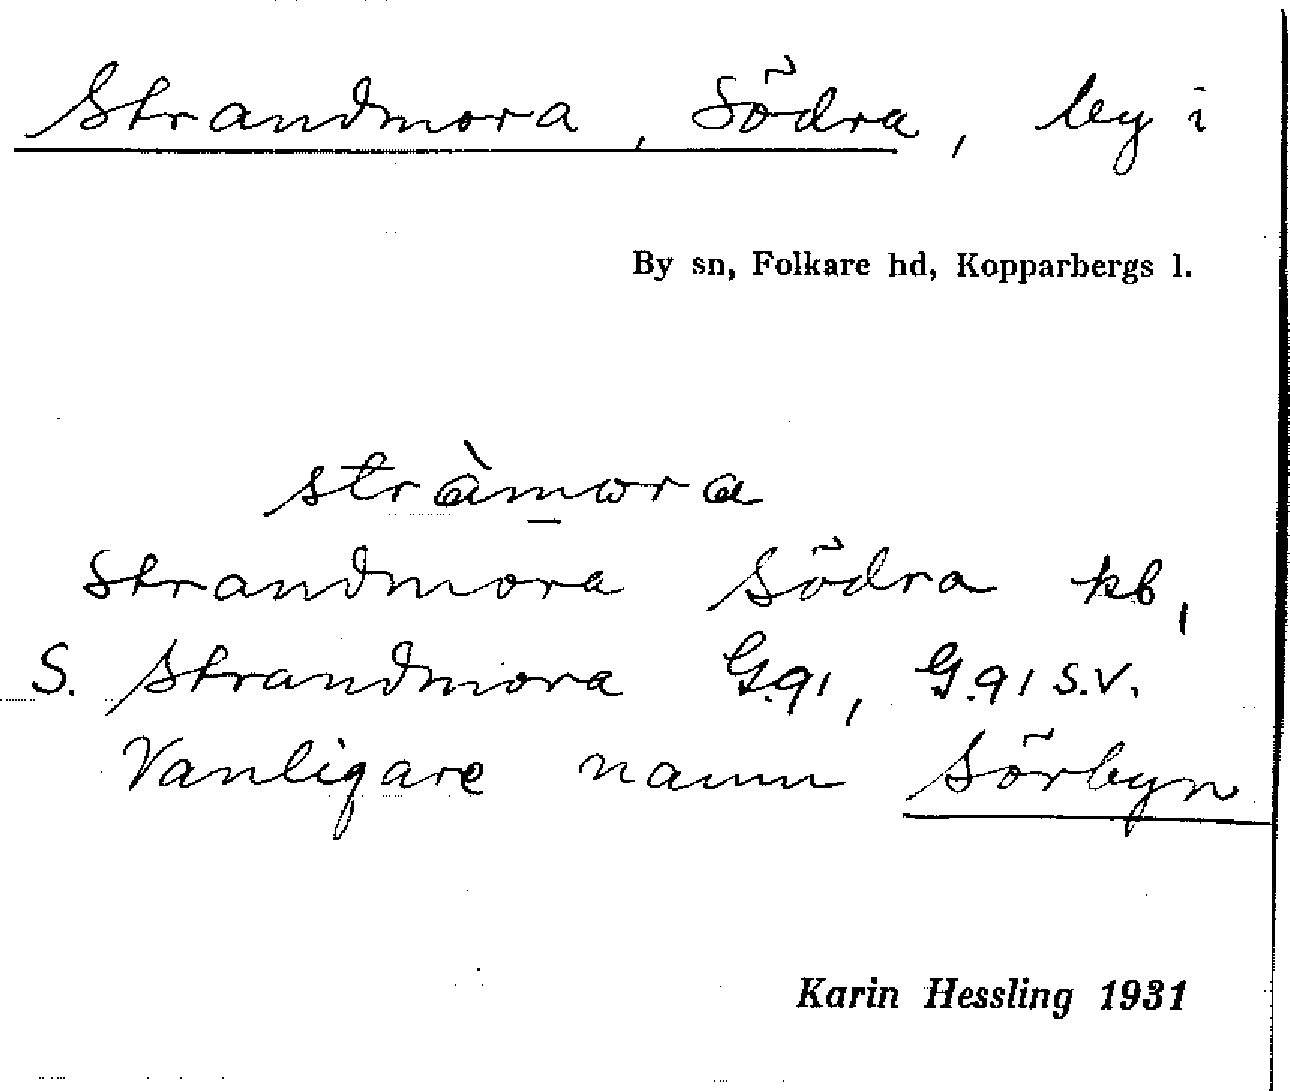 Strandmora, Södra, by i
By sn, Folkare hd, Kopparbergs l.
stràmωra
Strandmora Södra kb,
S. Strandmora G.91, G.91 s.v.
Vanligare namn Sörbyn
Karin Hessling 1931